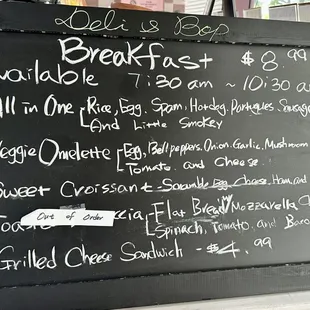 Deli & Bop
Breakfast $8.99
vailable 7:30 am ~ 10:30 a
ll in One Rice, Egg, Spam, Hotdog, Portugues, Sausag
And Little Smokey
eggie Omelette Egg, Bell peppers, Onion, Garlic, Mushroom
Tomato, and Cheese.
Sweet Croissant - Scramble Egg, Cheese, Ham, and
Out of Order cia - Flat Bread Mozzarella
Spinach, Tomato, and
Grilled Cheese Sandwich - $4.99